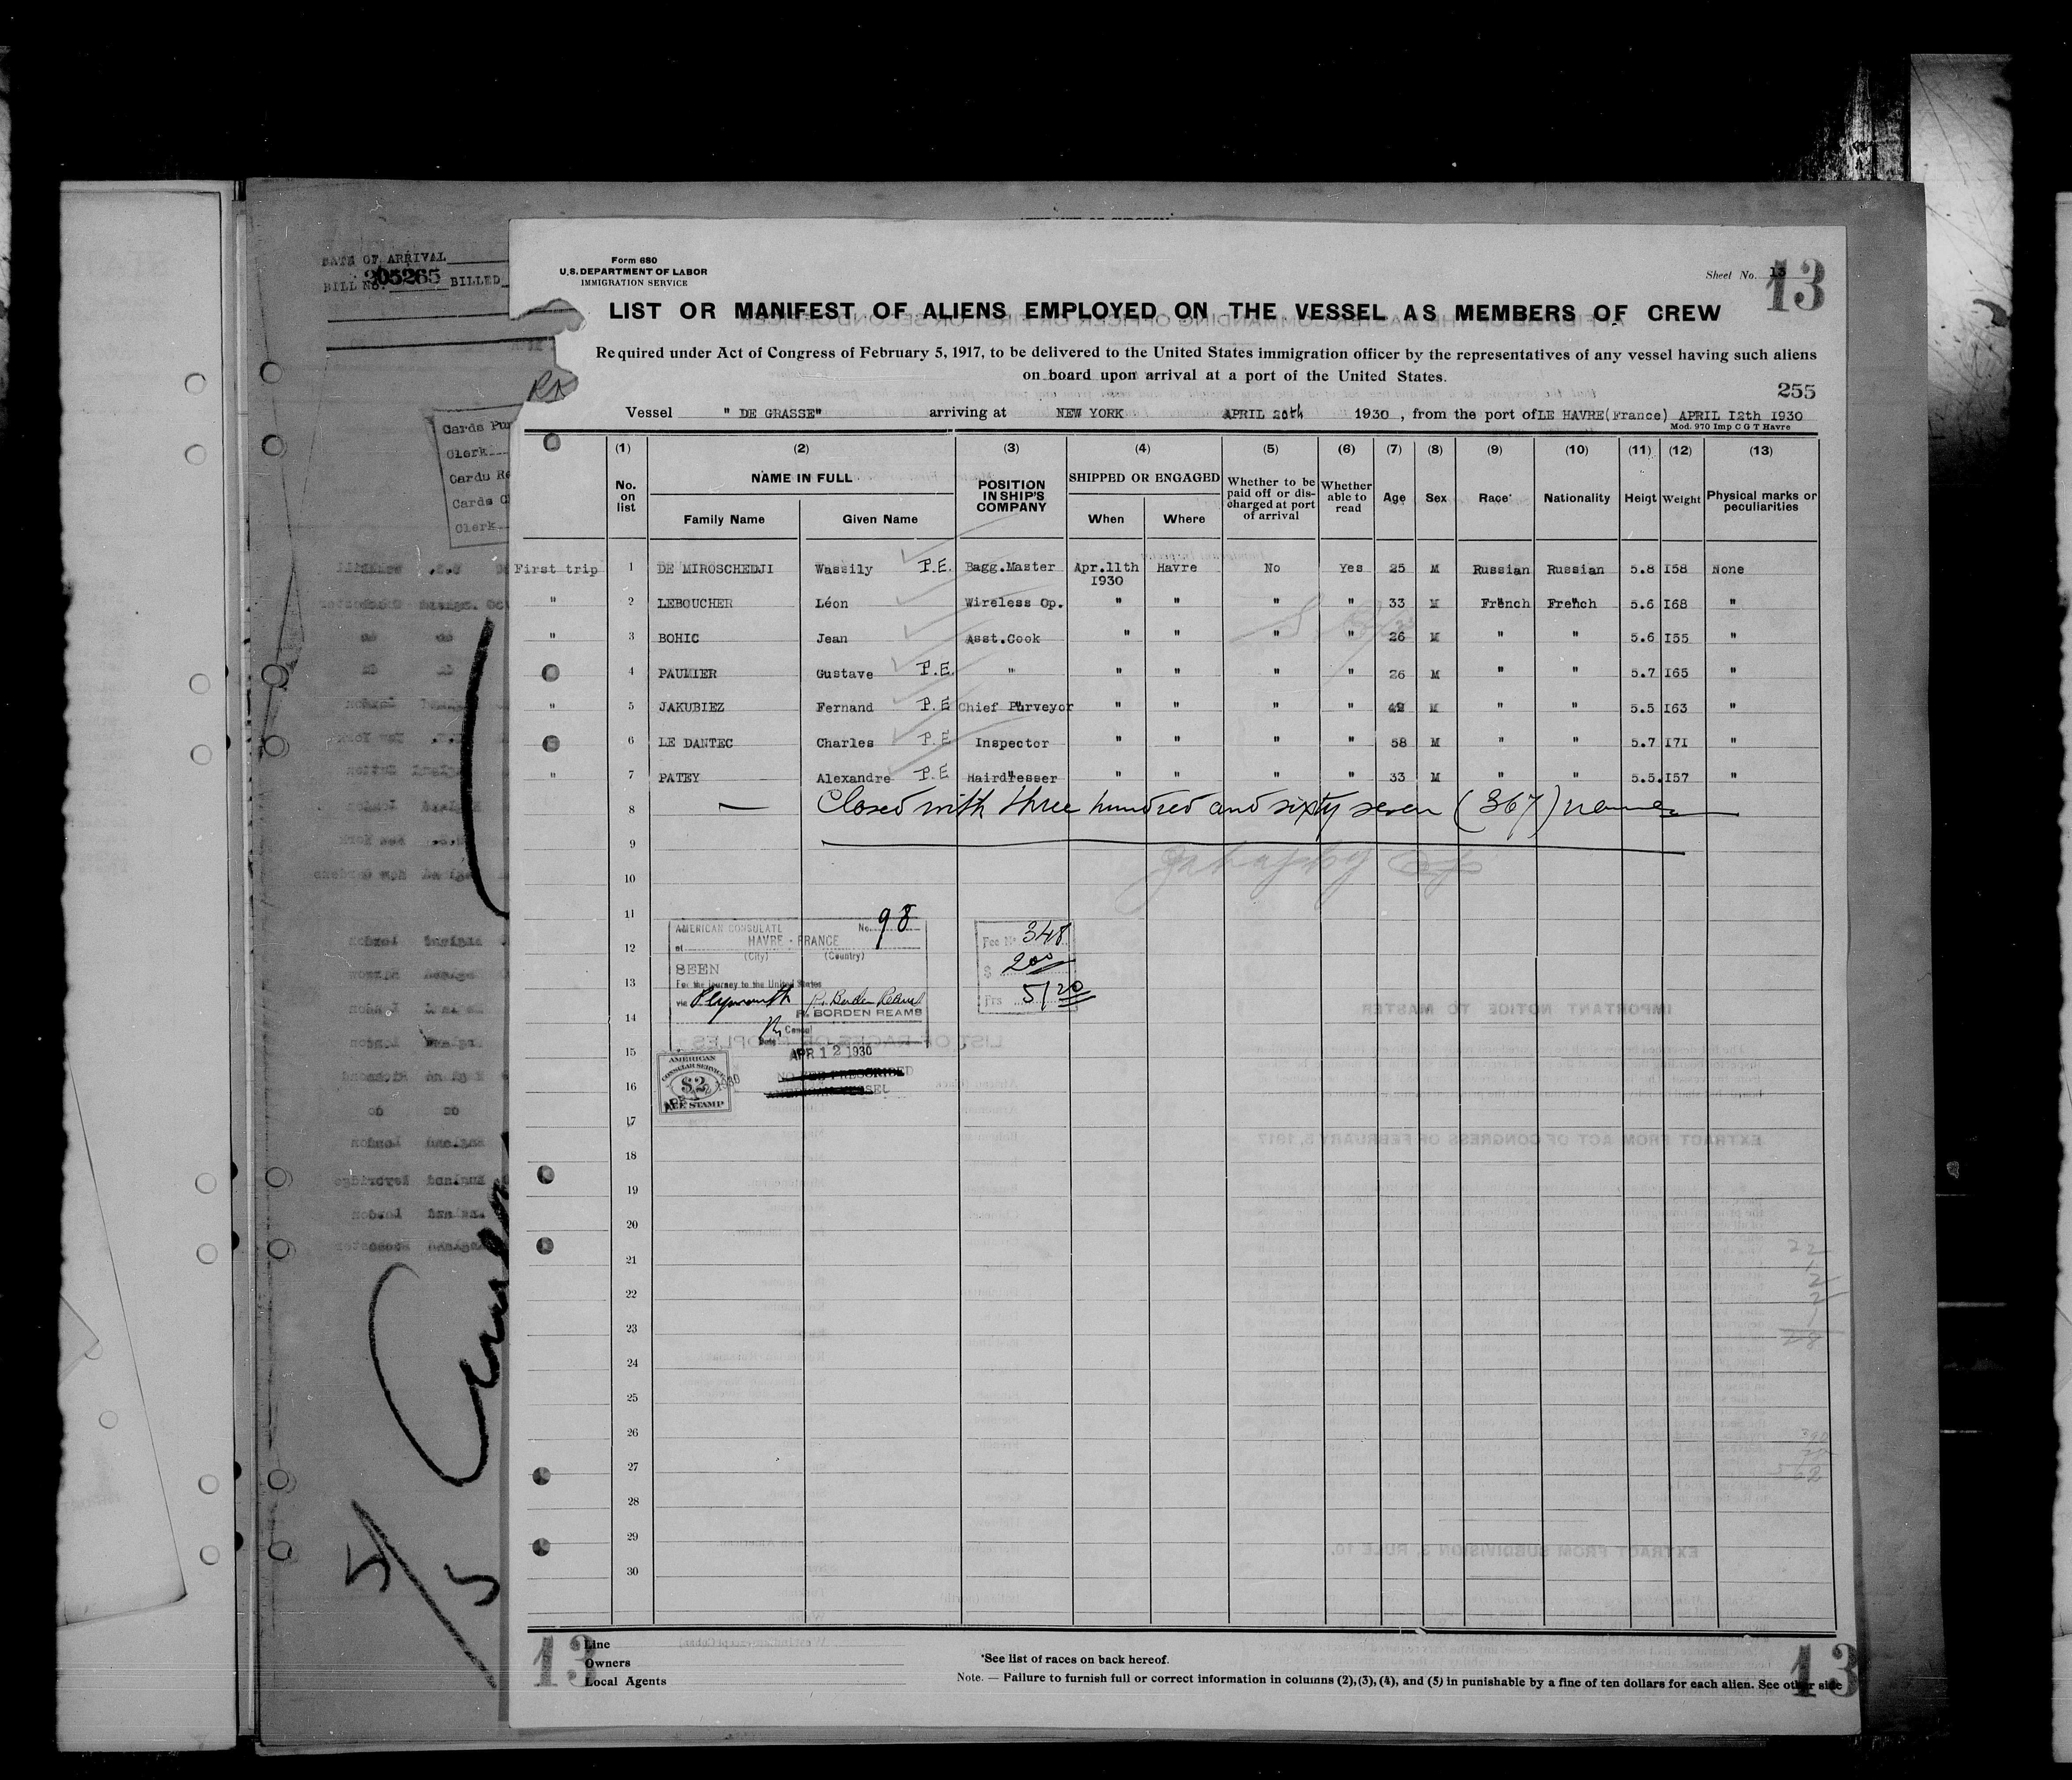 DATE OF ARRIVAL
BILL No. 205265 BILLED
Cards
Clerk
Cards
Cards
Clerk
5/5
Form 680
U.S. DEPARTMENT OF LABOR
IMMIGRATION SERVICE
Sheet No. 13
13
LIST OR MANIFEST OF ALIENS EMPLOYED ON THE VESSEL AS MEMBERS OF CREW
Required under Act of Congress of February 5, 1917, to be delivered to the United States immigration officer by the representatives of any vessel having such aliens
on board upon arrival at a port of the United States.
255
Vessel " DE GRASSE" arriving at NEW YORK APRIL 20th 1930 , from the port of LE HAVRE(France) APRIL I2th I930
Mod. 970 Imp C G T Havre
(1) (2) (3) (4) (5) (6) (7) (8) (9) (10) (11) (12) (13)
No. on list NAME IN FULL Family Name Given Name POSITION IN SHIP'S COMPANY SHIPPED OR ENGAGED When Where Whether to be paid off or discharged at port of arrival Whether able to read Age Sex Race* Nationality Heigt Weight Physical marks or peculiarities
First trip 1 DE MIROSCHEDJI Wassily P.E. Bagg.Master Apr.11th 1930 Havre No Yes 25 M Russian Russian 5.8 I58 None
" 2 LEBOUCHER Léon Wireless Op. " " " " 33 M French French 5.6 I68 "
" 3 BOHIC Jean Asst.Cook " " " " 26 M " " 5.6 I55 "
4 PAUMIER Gustave P.E. " " " " " 26 M " " 5.7 I65 "
" 5 JAKUBIEZ Fernand P.E Chief Purveyor " " " " 49 M " " 5.5 I63 "
6 LE DANTEC Charles P.E Inspector " " " " 58 M " " 5.7 I7I "
" 7 PATEY Alexandre P.E Hairdresser " " " " 33 M " " 5.5. I57 "
8 — Closed with three hundred and sixty seven (367) names
9
10
11
12
13
14
15
16
17
18
19
20
21
22
23
24
25
26
27
28
29
30
AMERICAN CONSULATE No. 98
at HAVRE - FRANCE
(City) (Country)
SEEN
For the journey to the United States
via Plymouth R. Borden Reams
R. BORDEN REAMS
Consul
Date APR 12 1930
NO FEE PRESCRIBED
AMERICAN VESSEL
Fee No 348
$ 200
Frs 51 20
AMERICAN
CONSULAR SERVICE
$2
FEE STAMP
APR 12 1930
13 Line
Owners
Local Agents
*See list of races on back hereof.
Note. — Failure to furnish full or correct information in columns (2), (3), (4), and (5) in punishable by a fine of ten dollars for each alien. See other side
13